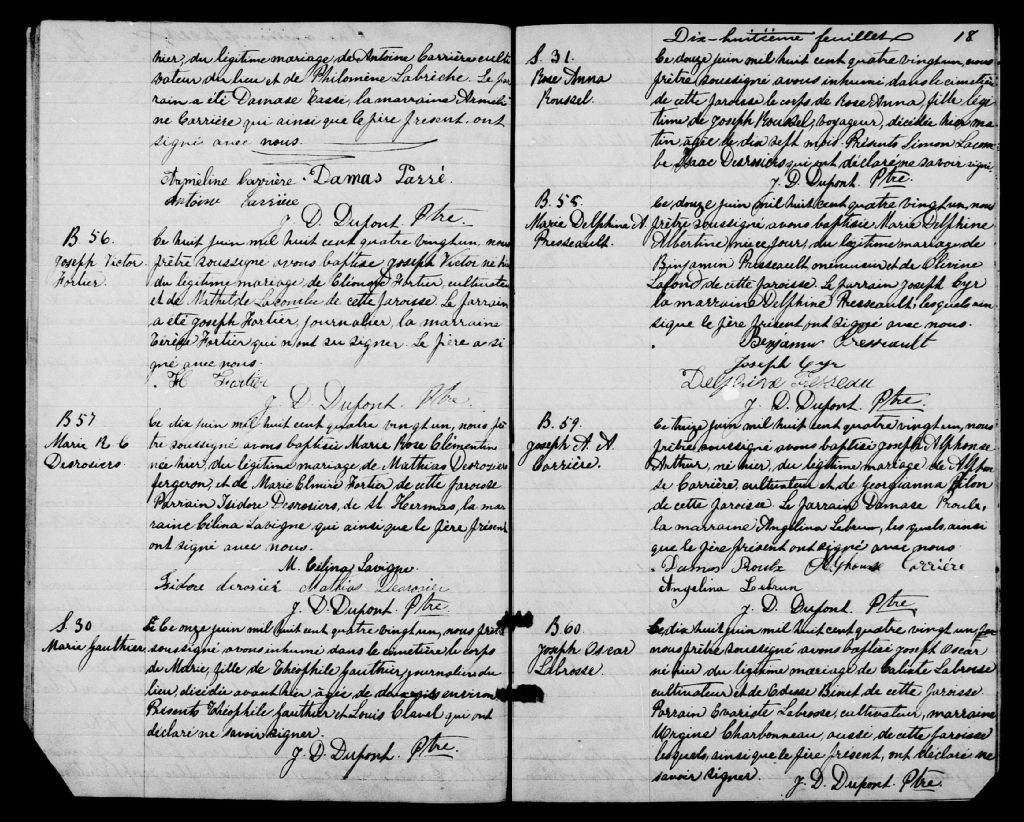 hier, du légitime mariage de Antoine Carrière culti
vateur du lieu et de Philomène Labrèche. Le par
rain a été Damase Tassé, la marraine Armeli
ne Carrière qui ainsi que le père présent, ont
signé avec nous.
Armeline Carrière Damas Tassé.
Antoine Carrière
J. D. Dupont. Ptre.
B. 56.
Joseph Victor
Fortier.
Le huit juin mil huit cent quatre vingt un, nous
prêtre soussigné avons baptisé Joseph Victor né hier
du légitime mariage de Fortier, cultivateur
et de Mathilde Lacombe de cette paroisse. Le parrain
a été Joseph Fortier, journalier, la marraine
Fortier qui n'ont su signer. Le père a si
gné avec nous.
Fortier
J. D. Dupont. Ptre.
B 57
Marie R. C
Desrosiers.
Le dix juin mil huit cent quatre vingt un, nous prê
tre soussigné avons baptisé Marie Rose Clémentine
née hier, du légitime mariage de Mathias Desrosiers
forgeron, et de Marie Elmire Fortier de cette paroisse
Parrain Isidore Desrosiers, de St. Hermas, la mar
raine Célina Lavigne qui ainsi que le père présent
ont signé avec nous.
M. Célina Lavigne.
Isidore derosier Mathias Derosier
J. D. Dupont. Ptre.
S. 30
Marie Gauthier
Le onze juin mil huit cent quatre vingt un, nous prêtre
soussigné avons inhumé dans le cimetière le corps
de Marie, fille de Théophile Gauthier, journalier du
lieu, décédée avant hier agée de environ
Présents Théophile Gauthier et Louis Clavel qui ont
déclaré ne savoir signer.
J. D. Dupont. Ptre.
Dix-huitième feuillet 18
S. 31.
Rose Anna
Roussel.
Le douze juin mil huit cent quatre vingt un, nous
prêtre soussigné avons inhumé, dans le cimetière
de cette paroisse le corps de Rose Anna, fille légi
time de Joseph Roussel, voyageur, décédée hier ma
tin, agée de dix sept mois. Présents Simon Lacom
be, Isaac Desrosiers qui ont déclaré ne savoir signer.
J. D. Dupont. Ptre.
B. 58.
Marie Delphine A.
Presseault.
Le douze juin mil huit cent quatre vingt un, nous
prêtre soussigné avons baptisé Marie Delphine
Albertine, née ce jour, du légitime mariage de
Benjamin Presseault menuisier et de Olivine
Lafond de cette paroisse. Le parrain Joseph Cyr
la marraine Delphine Presseault, lesquels ain
si que le père présent ont signé avec nous.
Benjamin Presseault
Joseph Cyr
J. D. Dupont. Ptre.
B. 59.
Joseph A. A.
Carrière.
Le treize juin mil huit cent quatre vingt un, nous
prêtre soussigné avons baptisé Joseph Alphonse
Arthur, né hier, du légitime mariage de Alphon
se Carrière, cultivateur et de Georgianna
de cette paroisse. Le parrain Damase
la marraine Angelina Lebrun, lesquels, ainsi
que le père présent ont signé avec nous
Damas Alphonse Carrière
Angelina Lebrun
J. D. Dupont. Ptre.
B. 60.
Joseph Oscar
Labrosse.
Le dix huit juin mil huit cent quatre vingt un
nous prêtre soussigné avons baptisé Joseph Oscar
né hier du légitime mariage de Calixte Labrosse
cultivateur et de Edesse Binet de cette paroisse.
Parrain Evariste Labrosse, cultivateur, marraine
Charbonneau, aussi de cette paroisse
lesquels, ainsi que le père présent, ont déclaré ne
savoir signer.
J. D. Dupont Ptre.